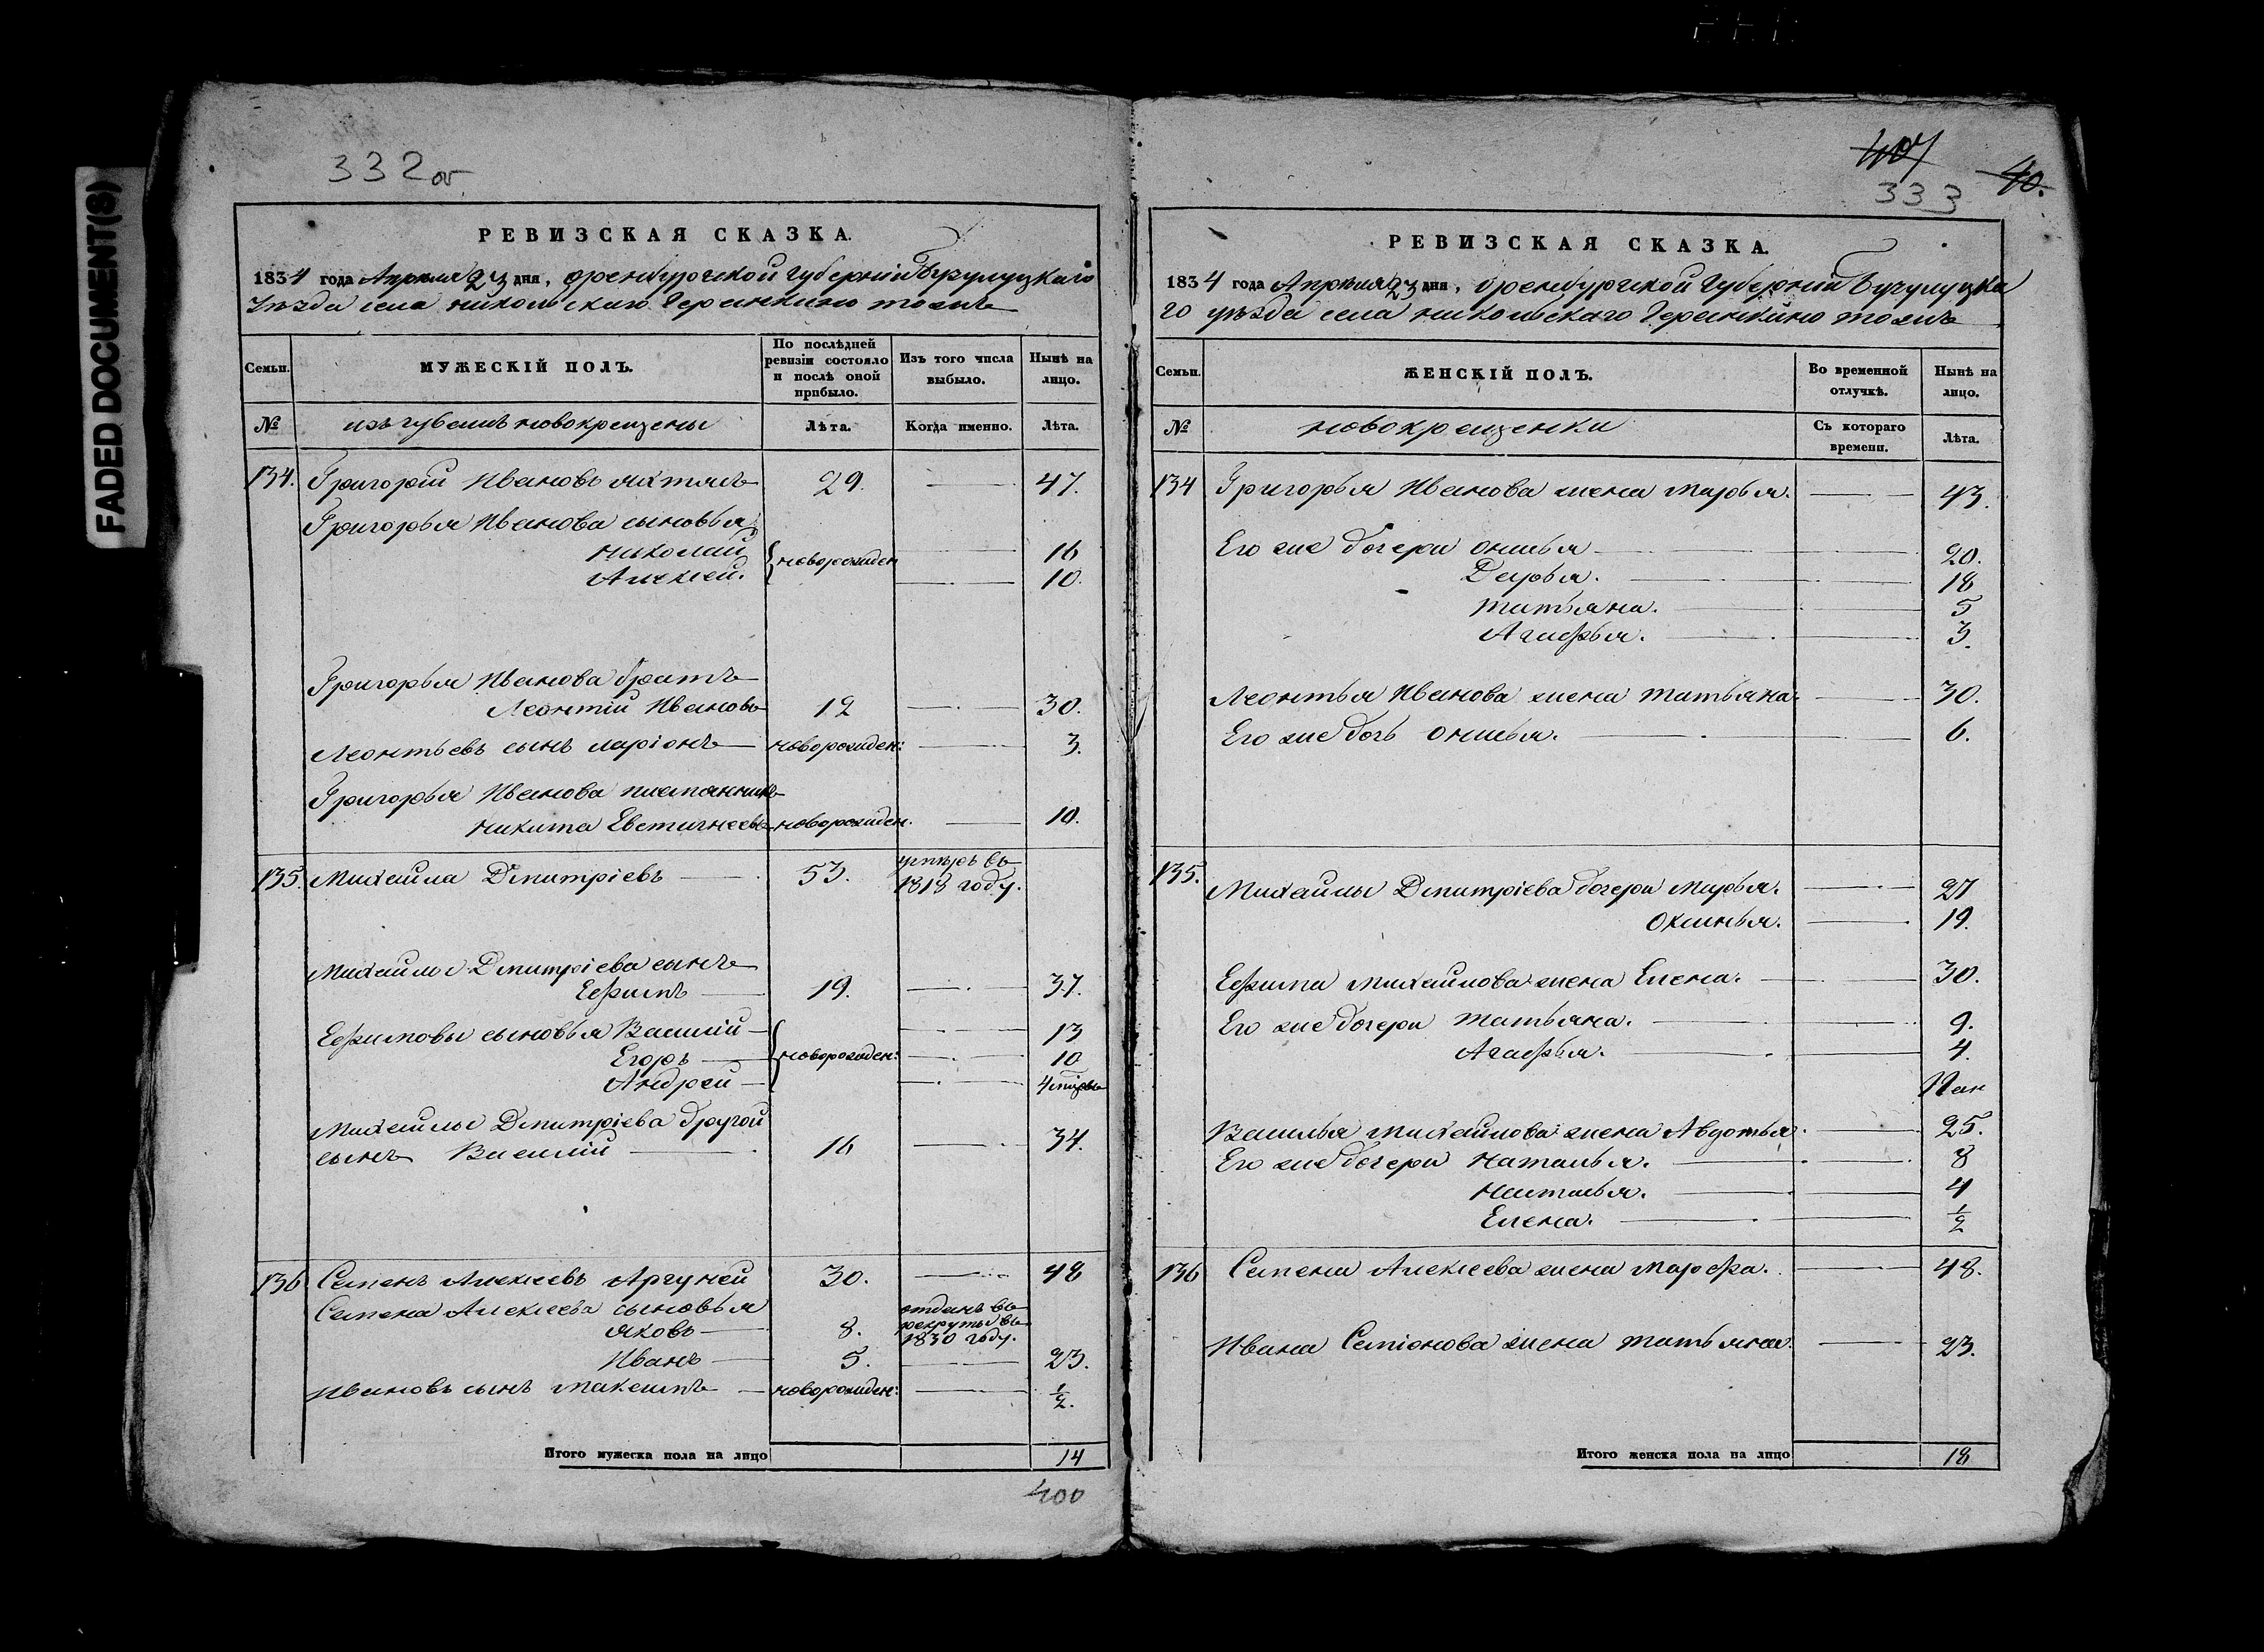 FADED DOCUMENT(S)
332 об
РЕВИЗСКАЯ СКАЗКА.
1834 года Апреля 23 дня, Оренбургской губернии Бузулуцкаго
уѣзда села никольскаго Черинкино тожъ
Семьи. МУЖЕСКІЙ ПОЛЪ. По послѣдней ревизіи состояло и послѣ оной прибыло. Изъ того числа выбыло. Нынѣ на лицо.
№ изъ чувашъ новокрещены Лѣта. Когда именно. Лѣта.
134. Григорій Ивановъ 29. 47.
Григорья Иванова сыновья
николай 16
Алексей. новорожден 10.
Григорья Иванова братъ
Леонтій Ивановъ 12 30.
Леонтьевъ сынъ ларіонъ новорожден: 3.
Григорья Иванова племянникъ
никита Евстигнеевъ новорожден. 10.
135. Михайла Дмитріевъ 53. умѣръ въ 1818 году.
Михайлы Дмитріева сынъ
Ефимъ 19. 37.
Ефимовы сыновья Василій 13
Егоръ новорожден: 10
Андрей 4
Михайлы Дмитріева другой
сынъ Василій 16 34.
136 Семенъ Алексеевъ Аргуней 30. 48
Семена Алексеева сыновья
яковъ 8. отданъ въ рекруты въ 1830 году.
Иванъ 5. 23.
Ивановъ сынъ максимъ новорожден: 1/2.
Итого мужеска пола на лицо 14
400
407
40.
333
РЕВИЗСКАЯ СКАЗКА.
1834 года Апрѣля 23 дня, Оренбургской Губерніи Бузулуцка
го уѣзда села никольскаго Черинкино тожъ
Семьи. ЖЕНСКІЙ ПОЛЪ. Во временной отлучкѣ. Нынѣ на лицо.
№ новокрещенки Съ котораго времени. Лѣта.
134 Григорья Иванова жена марья. 43.
Его же дочери онисья 20.
Дарья. 18
татьяна. 5
Агафья. 3.
Леонтья Иванова жена татьяна. 30.
Его же дочь онисья. 6.
135. Михайлы Дмитріева дочери марья. 27
Оксинья. 19.
Ефима михайлова жена Елена. 30.
Его же дочери татьяна. 9.
Агафья. 4.
Василья михайлова жена Авдотья. 25.
Его же дочери наталья. 8
наталья. 4
Елена. 1/2
136 Семена Алексеева жена марефа. 48.
Ивана Семіонова жена татьяна. 23.
Итого женска пола на лицо 18